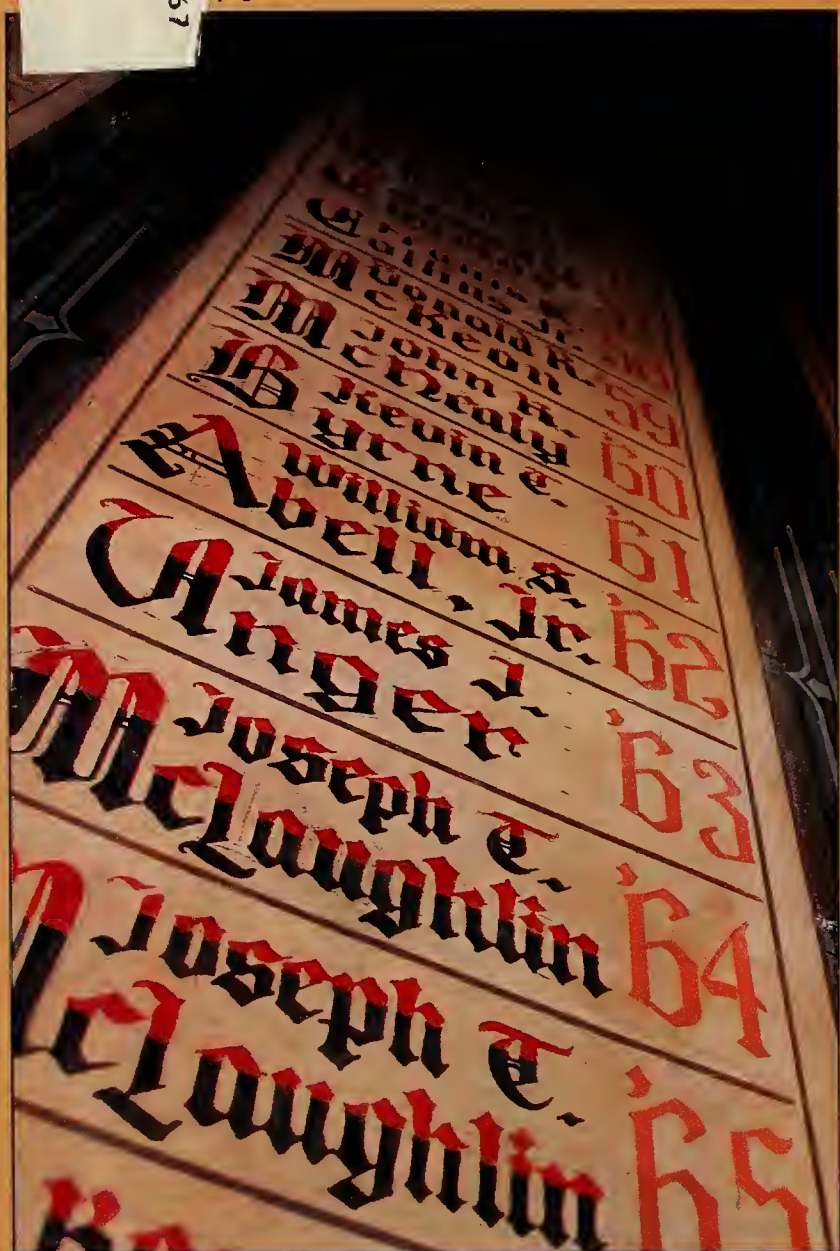 67
Jr.
Donald R.
McKeon '59
John
McNealy '60
Kevin T.
Byrne '61
William S.
Abell, Jr. '62
James J.
Unger '63
Joseph T.
McLaughlin '64
Joseph T.
McLaughlin '65